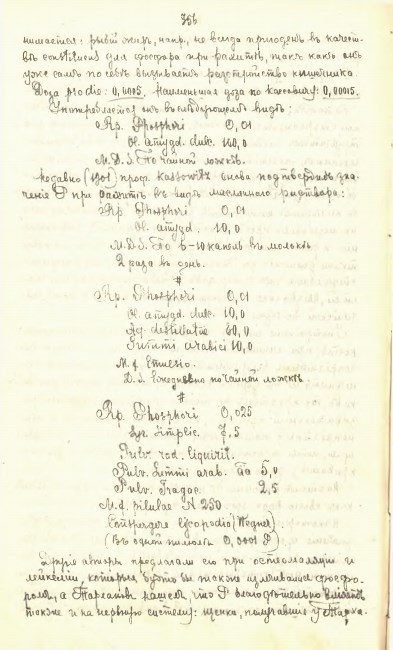 386
нимается: рыбій жиръ, напр., не всегда пригоденъ въ качест-
въ constituens для фосфора при рахитѣ, такъ какъ онъ
уже самъ по себѣ вызываетъ разстройство кишечника.
Доза pro die: 0,0005. Наименьшая доза по Кассовичу: 0,00015.
Употребляется онъ въ слѣдующемъ видѣ:
Rp. Phosphori 0,01
Ol. amygd. dulc. 10,0
M. D. S. По чайной ложкѣ.
Недавно (1901) проф. Kassowitz снова подтвердилъ зна-
ченіе P при рахитѣ въ видѣ маслянаго раствора:
Rp. Phosphori 0,01
Ol. amygd. 10,0
M. D. S. По 5-10 капель въ молокѣ
2 раза въ день.
#
Rp. Phosphori 0,01
Ol. amygd. dulc. 10,0
Aq. destillatae 80,0
Gummi arabici 10,0
M. f. Emulsio.
D. S. Ежедневно по чайной ложкѣ
#
Rp. Phosphori 0,025
Syr. simplic. 7,5
Pulv. rad. liquirit.
Pulv. Gummi arab. āā 5,0
Pulv. Tragac. 2,5
M. f. pilulae N 250
Conspergere lycopodio (Wegner).
(Въ одной пилюлѣ 0,0001 P)
Другіе авторы предлагали его при остеомаляціи и
лейкеміи, которыя будто бы также излѣчивались фосфо-
ромъ, а Тархановъ нашелъ, что P благодѣтельно вліяетъ
также и на нервную систему: щенки, получавшіе у Тарха.